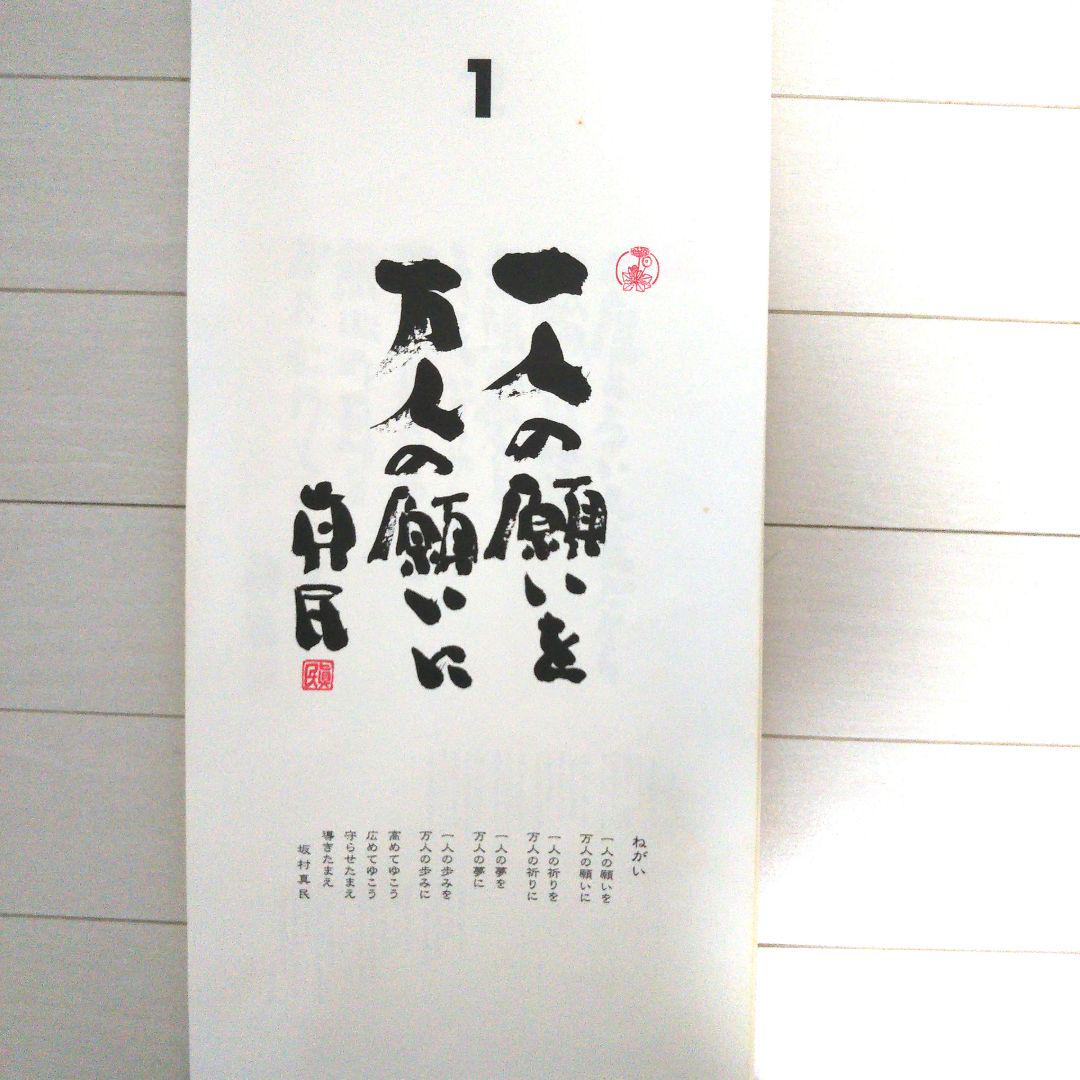 1
一人の願いを
万人の願いに
真民
眞民
ねがい
一人の願いを
万人の願いに
一人の祈りを
万人の祈りに
一人の夢を
万人の夢に
一人の歩みを
万人の歩みに
高めてゆこう
広めてゆこう
守らせたまえ
導きたまえ
坂村真民